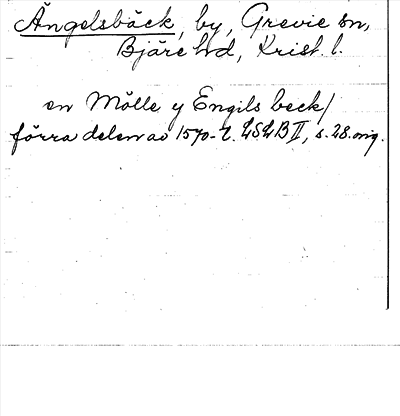 Ängelsbäck, by, Grevie sn,
Bjäre hd, Krist. l.
en Mölle y Engils beck/
förra delen av 1570-t. LSLB II, s. 28. orig.